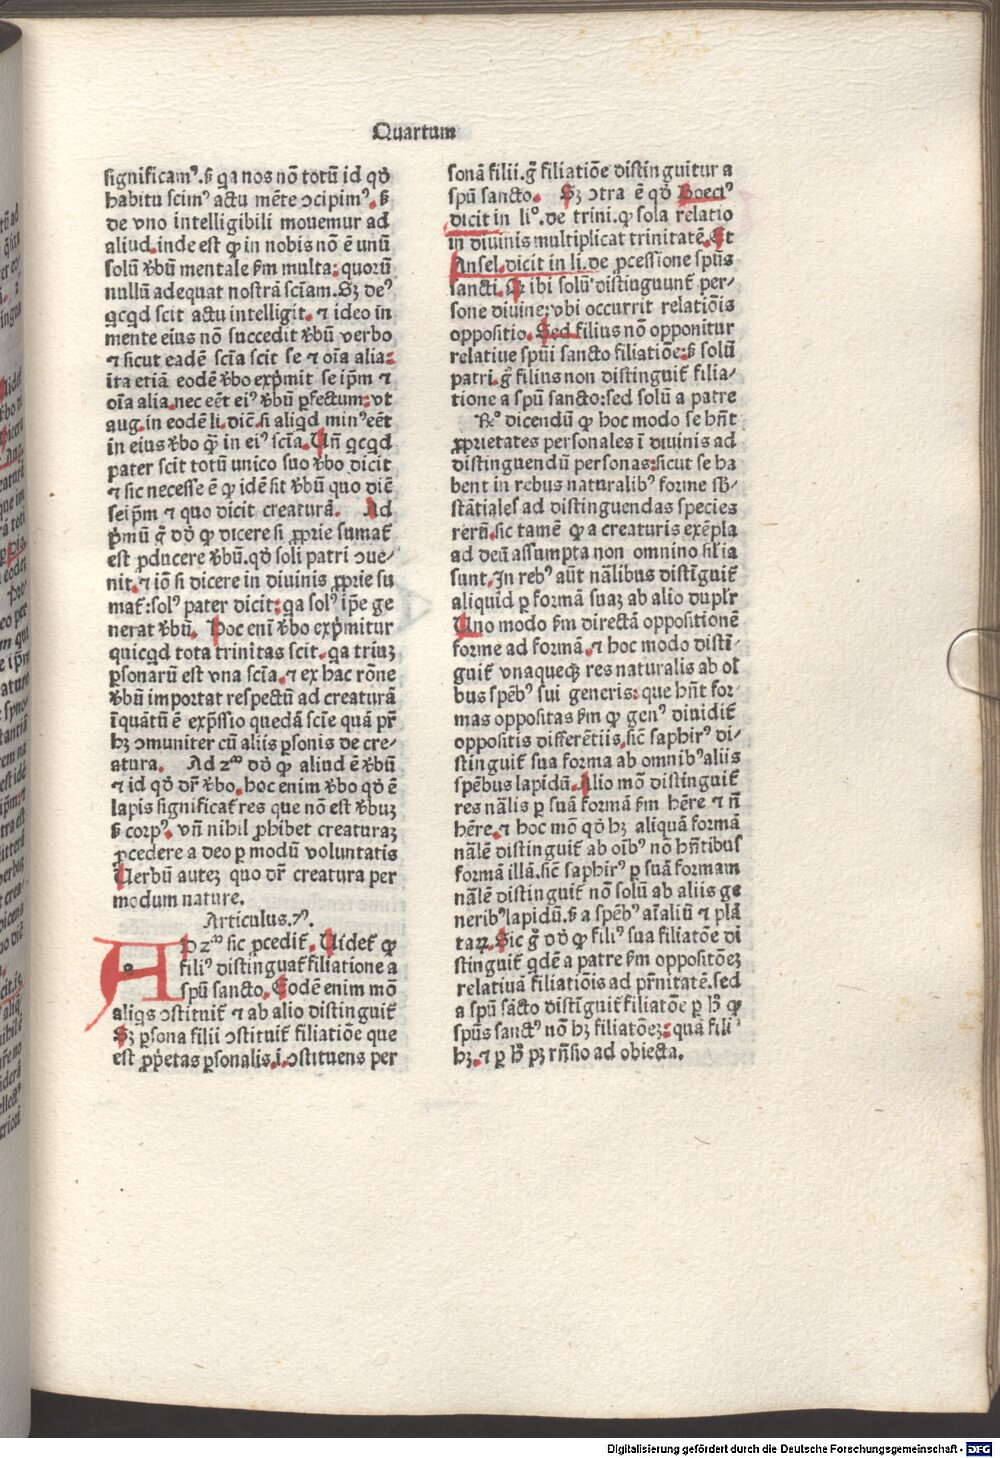 Quartum
significamꝰ. ſꝫ qa nos nō totū id qḋ
habitu scimꝰ actu mēte ↄcipimꝰ. ſꝫ
de vno intelligibili mouemur ad
aliud. inde est ꝙ in nobis nō ē unū
solū v̓bū mentale ſm multa: quorū
nullū adequat nostrā scīam. Sꝫ deꝰ
qcqd scit actu intelligit. ⁊ ideo in
mente eius nō succedit v̓bū verbo
⁊ sicut eadē scīa scit se ⁊ oīa alia:
ita etiā eodē v̓bo exp̄mit se ip̄m ⁊
oīa alia. nec eēt eiꝰ v̓bū ꝑfectum: vt
aug. in eodē li. dic̄. si aliqd minꝰ eēt
in eius v̓bo q̄ in eiꝰ scīa. Un̄ qcqd
pater scit totū unico suo v̓bo dicit
⁊ sic necesse ē ꝙ idē sit v̓bū quo dic̄
seip̄m ⁊ quo dicit creaturā. Ad
p̄mū g̊ dḋ ꝙ dicere si ꝓprie sumat᷑
est ꝓducere v̓bū. qḋ soli patri ↄue/
nit. ⁊ iō si dicere in diuinis ꝓprie su
mat᷑: solꝰ pater dicit: qa solꝰ ip̄e ge
nerat v̓bū. Hoc enī v̓bo exp̄mitur
quicqd tota trinitas scit. qa triuꝫ
ꝑsonarū est vna scīa. ⁊ ex hac rōne
v̓bū importat respectū ad creaturā
īquātū ē exp̄ssio quedā scīe quā pr̄
hꝫ ↄmuniter cū aliis ꝑsonis de cre-
atura. Ad 2ᵐ dḋ ꝙ aliud ē v̓bū
⁊ id qḋ dr̄ v̓bo. hoc enim v̓bo qḋ ē
lapis significat᷑ res que nō est v̓buꝫ
ſꝫ corpꝰ. vn̄ nihil ꝓhibet creaturaꝫ
ꝓcedere a deo ꝑ modū voluntatis
Uerbū auteꝫ quo dr̄ creatura per
modum nature.
Articulus.7ꝰ.
AD 2ᵐ sic ꝓcedit᷑. Uidet᷑ ꝙ
filiꝰ distinguat᷑ filiatione a
spū sancto. Eodē enim mō
aliqs ↄstituit᷑ ⁊ ab alio distinguit᷑
Sꝫ ꝑsona filii ↄstituit᷑ filiatiōe que
est ꝓp̄etas ꝑsonalis. i. ↄstituens per
sonā filii. g̊ filiatiōe distinguitur a
spū sancto. Sꝫ ↄtra ē qḋ Boeciꝰ
dicit in liº. de trini. ꝙ sola relatio
in diuinis multiplicat trinitatē. Et
Ansel. dicit in li. de ꝓcessione spūs
sancti. Qꝫ ibi solū distinguunt᷑ per-
sone diuine: vbi occurrit relatiōis
oppositio. Sed filius nō opponitur
relatiue spūi sancto filiatiōe: ſꝫ solū
patri. g̊ filius non distinguit᷑ filia/
tione a spū sancto: sed solū a patre
Rº dicendū ꝙ hoc modo se hn̄t
ꝓprietates personales ī diuinis ad
distinguendū personas: sicut se ha
bent in rebus naturalibꝰ forme sb̄/
stātiales ad distinguendas species
rerū. sic tamē ꝙ a creaturis exēpla
ad deū assumpta non omnino sil̄ia
sunt. In rebꝰ aūt nālibus distīguit᷑
aliquid ꝑ formā suaꝫ ab alio duplr̄
Uno modo ſm directā oppositionē
forme ad formā. ⁊ hoc modo distī-
guit᷑ vnaqueqꝫ res naturalis ab oī
bus spēbꝰ sui generis: que hn̄t for-
mas oppositas ſm ꝙ genꝰ diuidit᷑
oppositis differētiis. sic̄ saphirꝰ di-
stinguit᷑ sua forma ab omnibꝰ aliis
spēbus lapidū. Alio mō distinguit᷑
res nālis ꝑ suā formā ſm hēre ⁊ n̄
hēre. ⁊ hoc mō qḋ hꝫ aliquā formā
nālē distinguit᷑ ab oībꝰ nō hn̄tibus
formā illā. sic̄ saphirꝰ ꝑ suā formam
nālē distinguit᷑ nō solū ab aliis ge
neribꝰ lapidū. ſꝫ a spēbꝰ aīaliū ⁊ plā
taꝝ. Sic g̊ dḋ ꝙ filiꝰ sua filiatōe di
stinguit᷑ qdē a patre ſm oppositōeꝫ
relatiuā filiatiōis ad pr̄nitatē. sed
a spū sācto distīguit᷑ filiatōe ꝑ h̄ ꝙ
spūs sanctꝰ nō hꝫ filiatōeꝫ: quā filiꝰ
hꝫ. ⁊ ꝑ h̄ pꝫ rn̄sio ad obiecta.
Digitalisierung gefördert durch die Deutsche Forschungsgemeinschaft - DFG